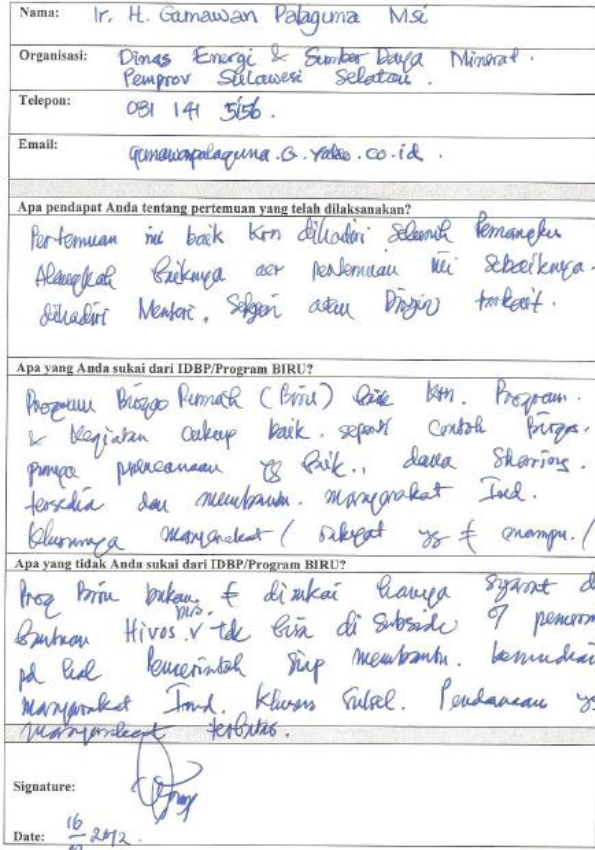 Nama: Ir. H. Gunawan Palaguna Msi
Organisasi: Dinas Energi & Sumber Daya Mineral.
Pemprov Sulawesi Selatan.
Telepon: 081 141 5156.
Email: gunawanpalaguna.G.yahoo.co.id.
Apa pendapat Anda tentang pertemuan yang telah dilaksanakan?
Pertemuan ini baik krn dihadiri seluruh Pemangku
Alangkah baiknya pertemuan ini sebaiknya
dihadiri Menteri, Sekjen atau Dirjen terkait.
Apa yang Anda sukai dari IDBP/Program BIRU?
Program Biogas Rumah (Biru) baik krn. Program.
& Kegiatan cukup baik. seperti contoh Biogas.
punya perencanaan yg baik., dana Sharring.
tersedia dan membantu. masyarakat Ind.
khususnya masyarakat / rakyat yg ≠ mampu. /
Apa yang tidak Anda sukai dari IDBP/Program BIRU?
Prog Biru bukan ≠ disukai hanya syarat
Bantuan Hivos tdk bisa di Subsidi
pd hal Pemerintah siap membantu. kemudian
masyarakat Ind. Khusus Sulsel. Pendanaan
masyarakat terbatas.
Signature:
Date: 16 2012.